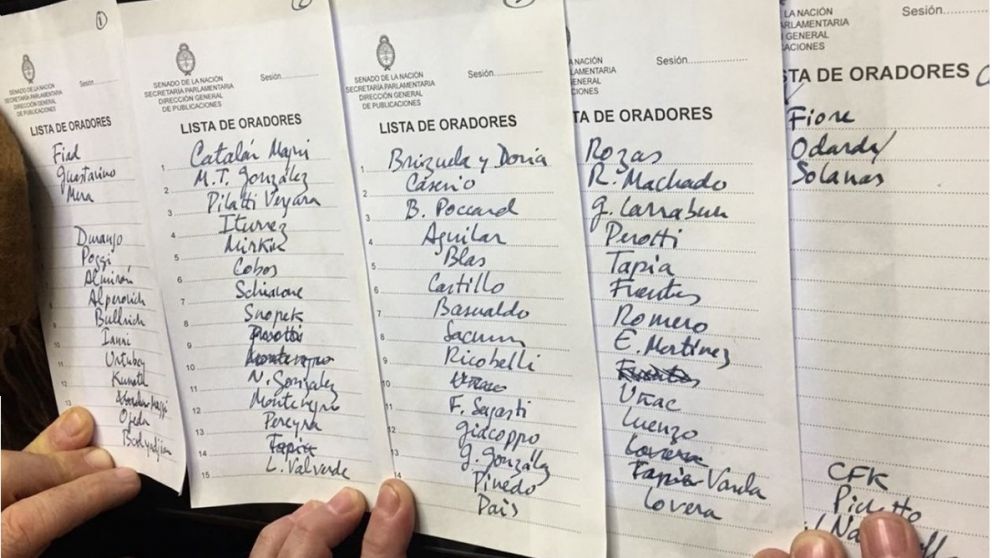 ①
SENADO DE LA NACIÓN
SECRETARÍA PARLAMENTARIA
DIRECCIÓN GENERAL
DE PUBLICACIONES
Sesión
LISTA DE ORADORES
Fiad
Guastavino
Mera
Durango
Poggi
Almirón
Alperovich
Bullrich
9
10
Urtubey
11
12 Kunath
13
Ojeda
SENADO DE LA NACIÓN
SECRETARÍA PARLAMENTARIA
DIRECCIÓN GENERAL
DE PUBLICACIONES
Sesión..............
LISTA DE ORADORES
1 Catalán Magni
2 M.T. González
3 Pilatti Vergara
4 Iturrez
5 Mirkin
6 Cobos
7 Schiavone
8 Snopek
9 Perotti
10 Montenegro
11 N. Gonzalez
12 Montenegro
13 Pereyra
14 Tapia
15 L. Valverde
SENADO DE LA NACIÓN
SECRETARÍA PARLAMENTARIA
DIRECCIÓN GENERAL
DE PUBLICACIONES
Sesión..............
LISTA DE ORADORES
1 Brizuela y Doria
2 Caserio
3 B. Poccard
4 Aguilar
5 Blas
6 Castillo
7 Basualdo
8 Sacnun
9 Ricobelli
10 Uñac
11 F. Sagasti
12 Giacoppo
13 G. González
14 Pinedo
Pais
A NACIÓN
RLAMENTARIA
GENERAL
ACIONES
Sesión..............
TA DE ORADORES
Rozas
R. Machado
G. Larraburu
Perotti
Tapia
Fuentes
Romero
E. Martínez
Fuentes
Uñac
Luenzo
Lovera
Tapia Varela
Lovera
LA NACIÓN
RLAMENTARIA
GENERAL
ACIONES
Sesión..............
TA DE ORADORES
Fiore
Odarda
Solanas
CFK
Pichetto